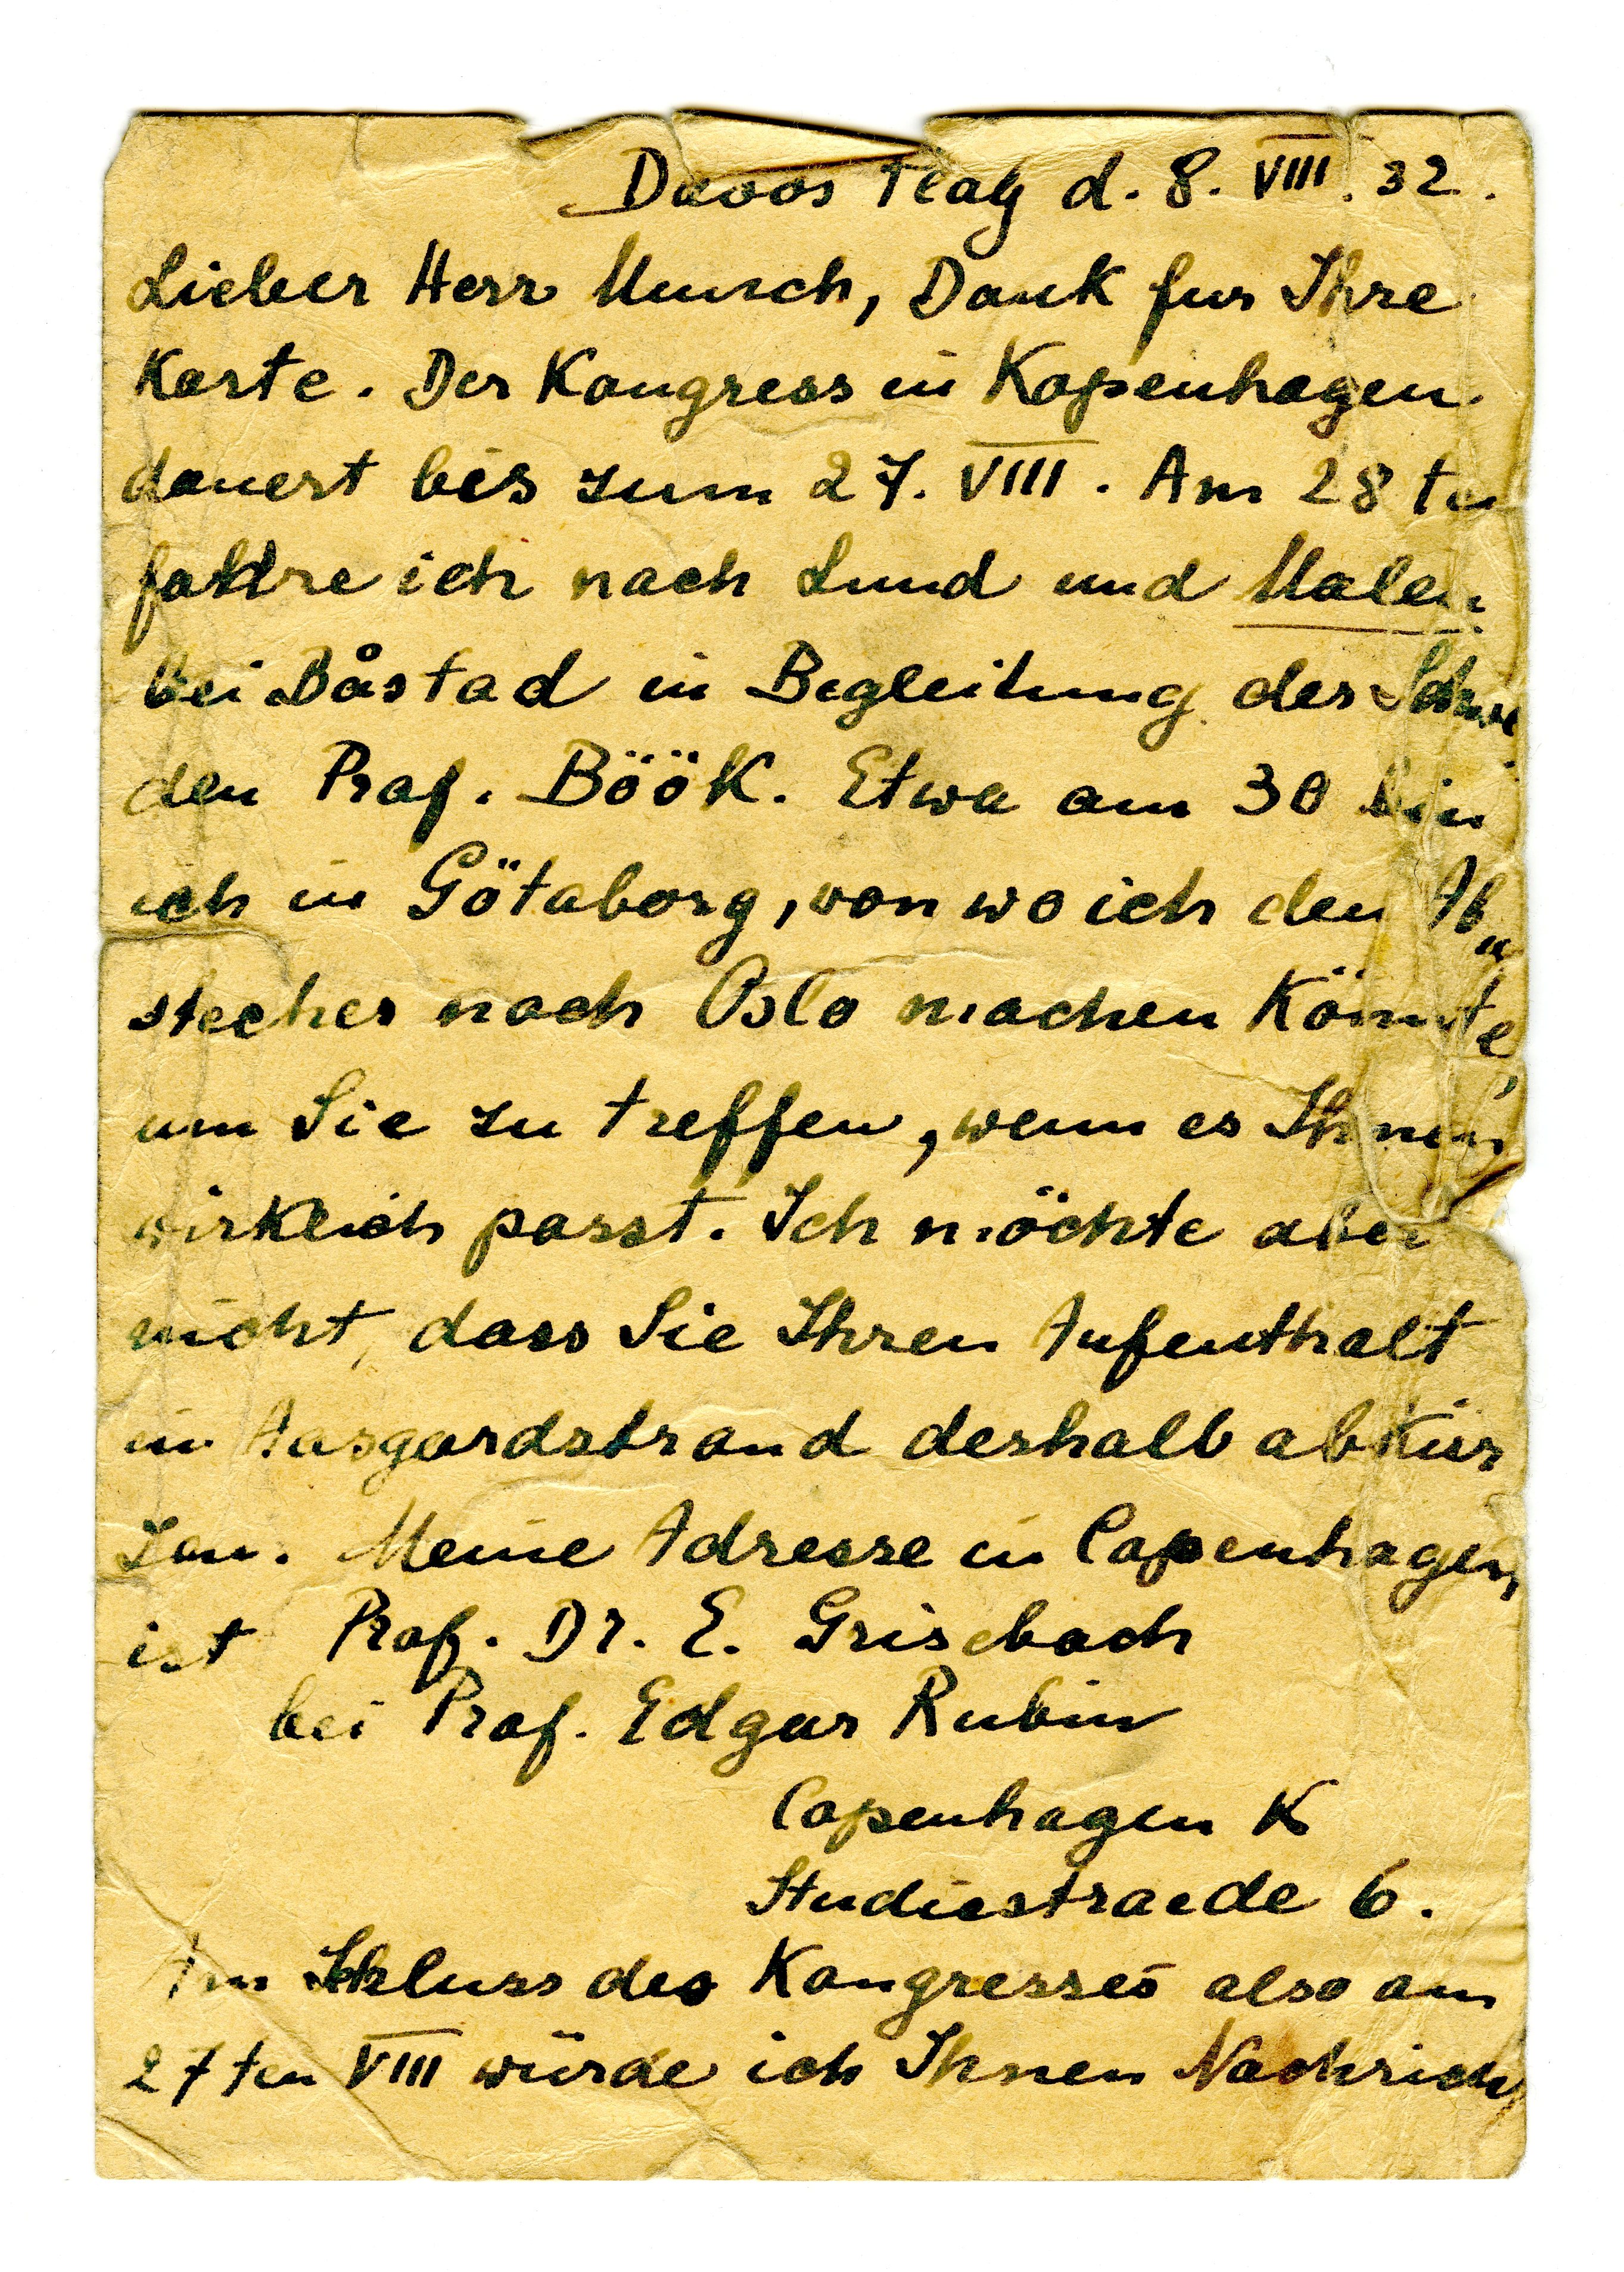 Davos Platz d. 8. VIII. 32.
Lieber Herr Munch, Dank fur Ihre
Karte. Der Kongress in Kopenhagen
dauert bis zum 27. VIII. Am 28 ten
fahre ich nach Lund und Malen
bei Båstad in Begleitung des Schwe
den Prof. Böök. Etwa am 30 bin
ich in Götaborg, von wo ich den Ab
stecher nach Oslo machen könnte,
um Sie zu treffen, wenn es Ihnen
wirklich passt. Ich möchte aber
nicht, dass Sie Ihren Aufenthalt
in Aasgardstrand deshalb abkür
zen. Meine Adresse in Copenhagen
ist Prof. Dr. E. Grisebach
bei Prof. Edgar Rubin
Copenhagen K
Studiestraede 6.
Am Schluss des Kongresses also am
27ten VIII würde ich Ihnen Nachricht